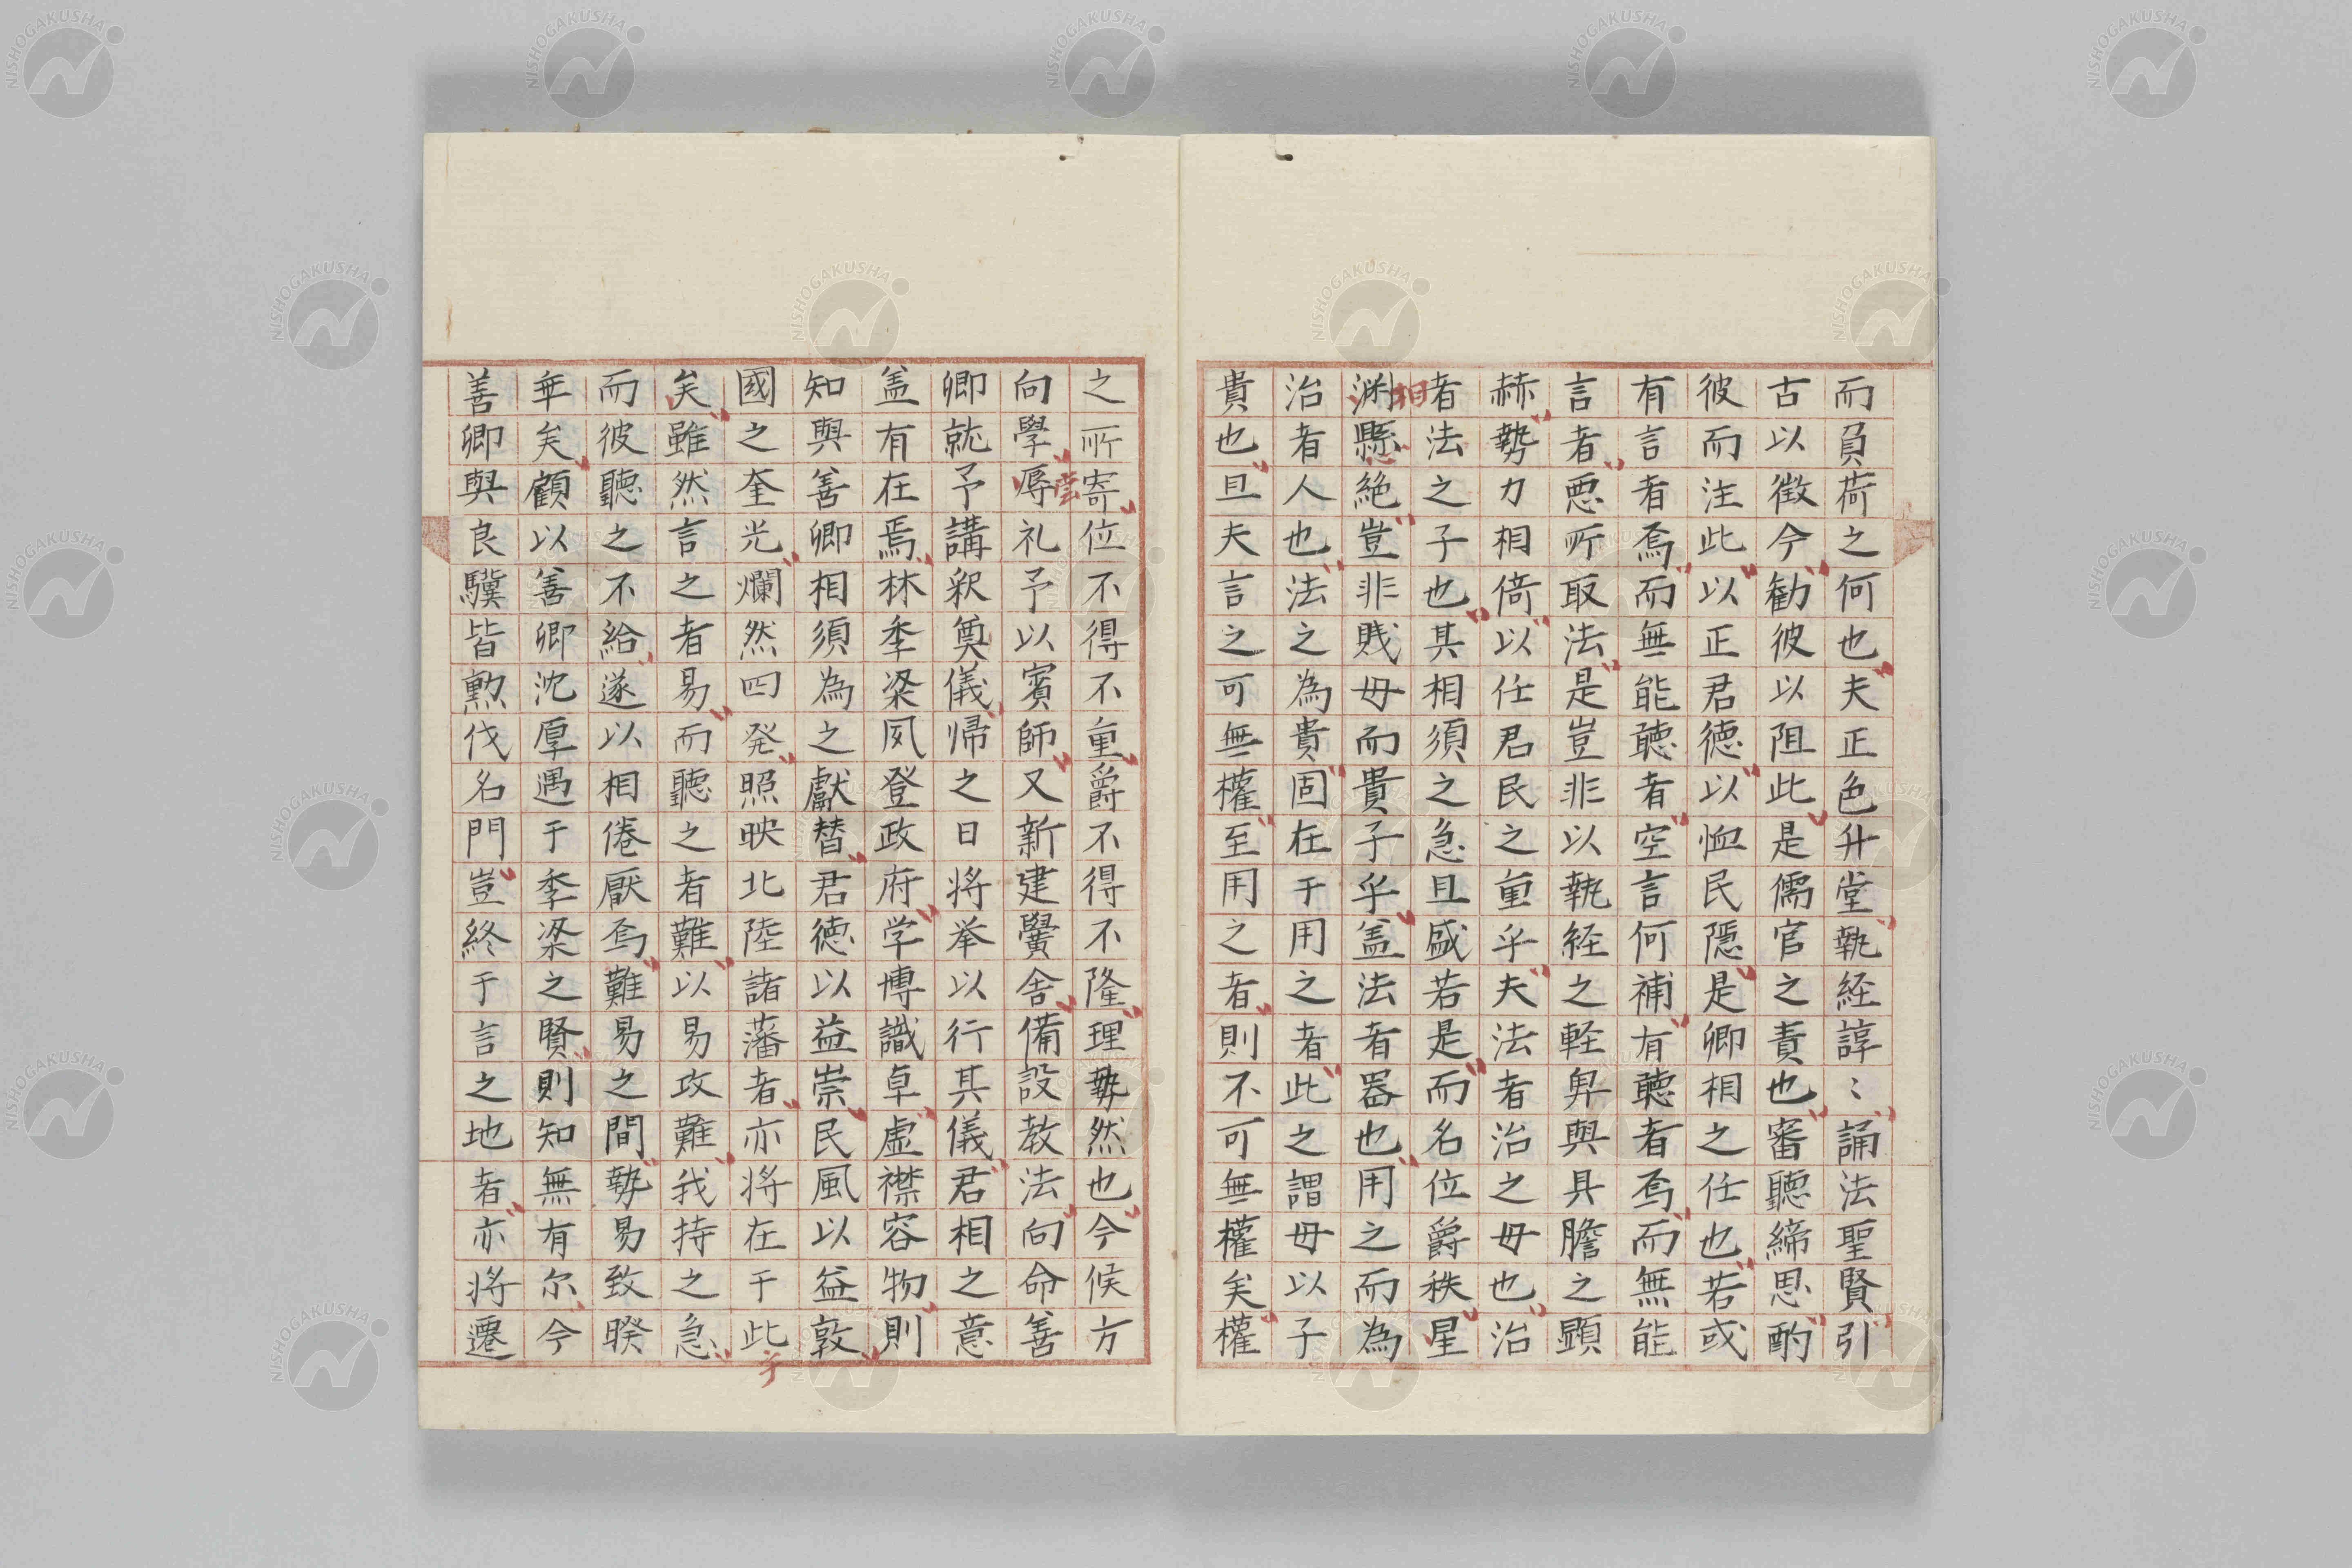 而負荷之何也夫正色升堂執経諄〻誦法聖賢引
古以徴今勧彼以阻此是儒官之責也審聽締思酌
彼而注此以正君徳以恤民隠是卿相之任也若或
有言者焉而無能聽者空言何補有聽者焉而無能
言者悪所取法是豈非以執経之軽舁與具膽之顕
赫勢力相倚以任君民之重乎夫法者治之毋也治
者法之子也其相須之急且盛若是而名位爵秩星
淵縣絶豈非賎毋而貴子乎盖法者器也用之而為
相
治者人也法之為貴固在于用之者此之謂毋以子
貴也且夫言之可無權至用之者則不可無權矣權
之所寄位不得不重爵不得不隆理勢然也今候方
向學辱礼予以賓師又新建黌舎備設教法向命善
卿就予講釈奠儀帰之日将挙以行其儀君相之意
盖有在焉林季梁夙登政府学博識卓虚襟容物則
知與善卿相須為之獻替君徳以益崇民風以益敦
國之奎光爛然四発照映北陸諸藩者亦将在于此
乎
矣雖然言之者易而聽之者難以易攻難我持之急
而彼聽之不給遂以相倦厭焉難易之間勢易致睽
乖矣顧以善卿沈厚遇于季梁之賢則知無有尓今
善卿與良驥皆勲伐名門豈終于言之地者亦将遷
NISHOGAKUSHA